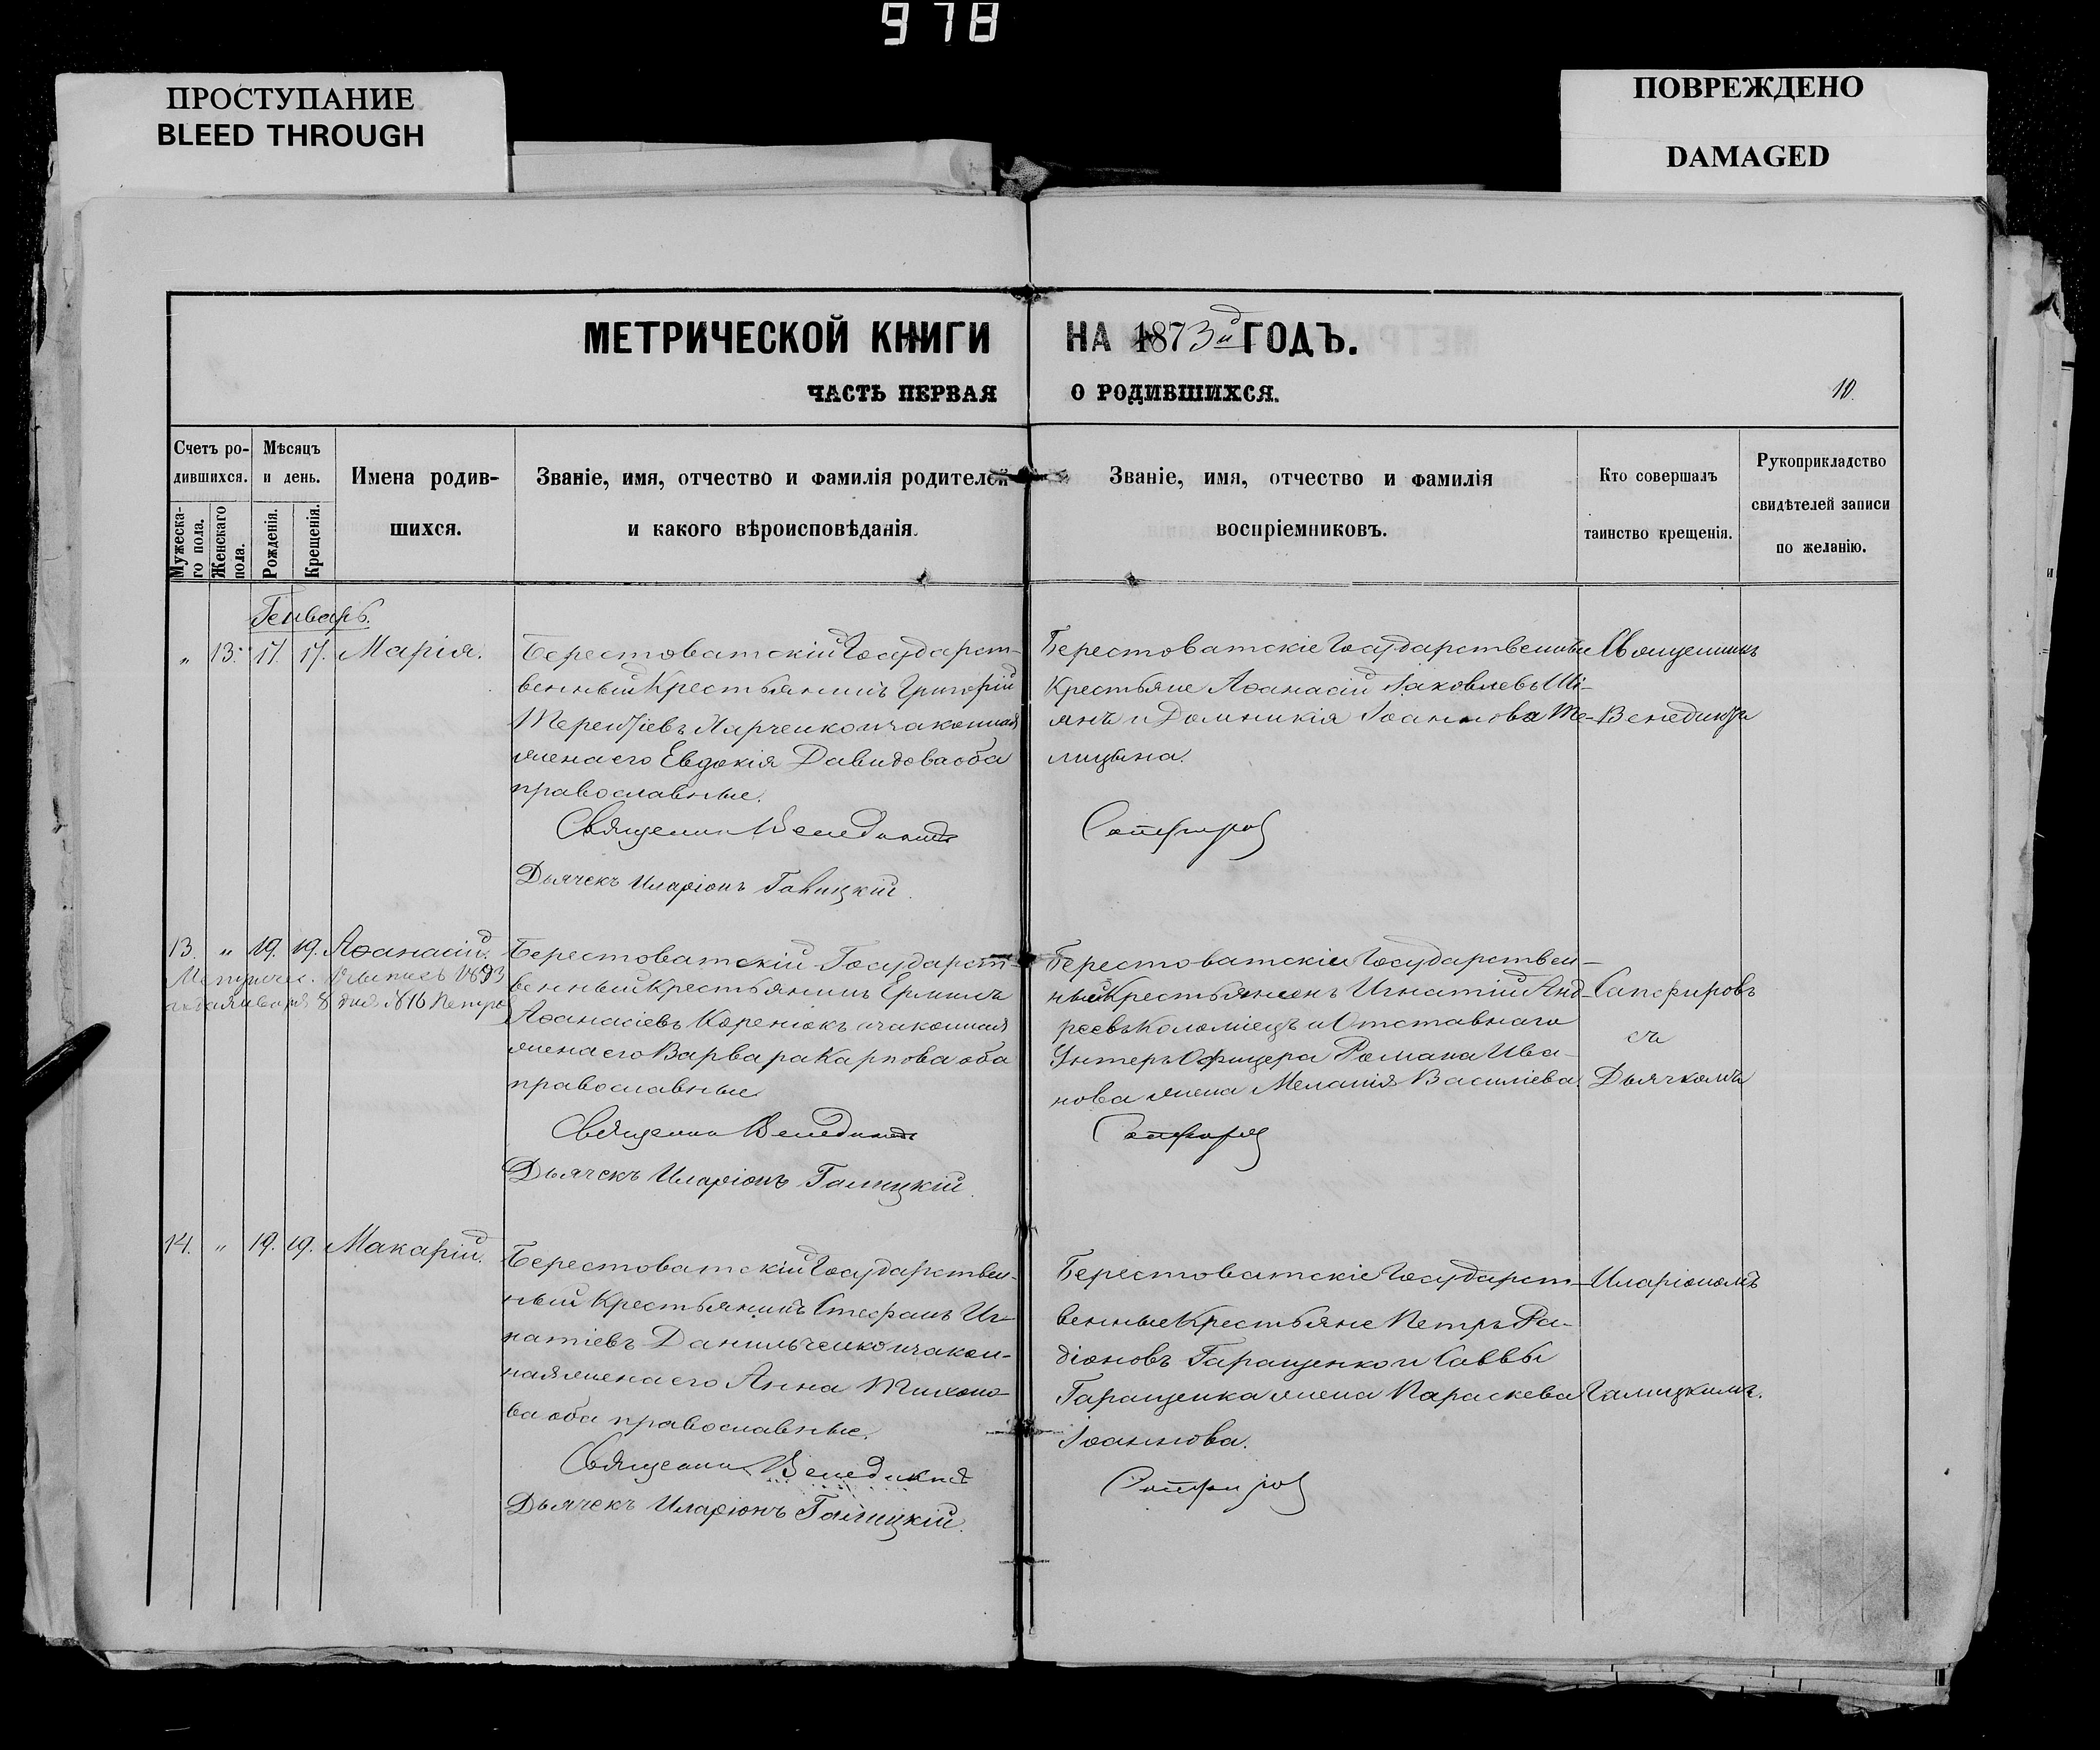 978
ПРОСТУПАНИЕ
BLEED THROUGH
ПОВРЕЖДЕНО
DAMAGED
МЕТРИЧЕСКОЙ КНИГИ НА 1873й ГОДЪ.
ЧАСТЬ ПЕРВАЯ О РОДИВШИХСЯ.
10.
Счетъ ро-
дившихся.
Мужеска-
го пола.
Женскаго
пола.
Мѣсяцъ
и день.
Рожденія.
Крещенія.
Имена родив-
шихся.
Званіе, имя, отчество и фамилія родителей
и какого вѣроисповѣданія.
Званіе, имя, отчество и фамилія
воспріемниковъ.
Кто совершалъ
таинство крещенія.
Рукоприкладство
свидѣтелей записи
по желанію.
Генварь.
" 13. 17. 17. Марія.
Берестоватскій Государст-
венный Крестьянинъ Григорій
Терентіевъ Харченко и законная
жена его Евдокія Давидова оба
православные.
Священник Венедиктъ
Дьячекъ Иларіонъ Галицкій.
Берестоватскіе Государственные
Крестьяне Аѳанасій Іаковлевъ
и Домникія Іоаннова
Сапфиров
Священникъ
Венедиктъ
13. " 19. 19. Аѳанасій.
Метричес. Выпись 1893
января 8 дня №16
Берестоватскій Государст-
венный Крестьянинъ Ермилъ
Аѳанасіевъ Коренюкъ и законная
жена его Варвара Карпова оба
православные
Священник Венедиктъ
Дьячекъ Иларіонъ Галицкій.
Берестоватскіе Государствен-
ный Крестьянинъ Игнатій Анд-
реевъ Коломіецъ и Отставнаго
Унтеръ Офицера Романа Ива-
нова жена Меланія Василіева.
Сапфиров
Сапфировъ
съ
Дьячкомъ
14. " 19. 19. Макарій.
Берестоватскій Государствен-
ный Крестьянинъ Стефанъ Иг-
натіевъ Данильченко и закон-
ная жена его Анна Тихоно-
ва оба православные.
Священник Венедиктъ
Дьячекъ Иларіонъ Галицкій.
Берестоватскіе Государст-
венные Крестьяне Петръ Ра-
діоновъ Гаращенко и Саввы
Гаращенка жена Параскева
Іоаннова.
Сапфиров
Иларіономъ
Галицкимъ.